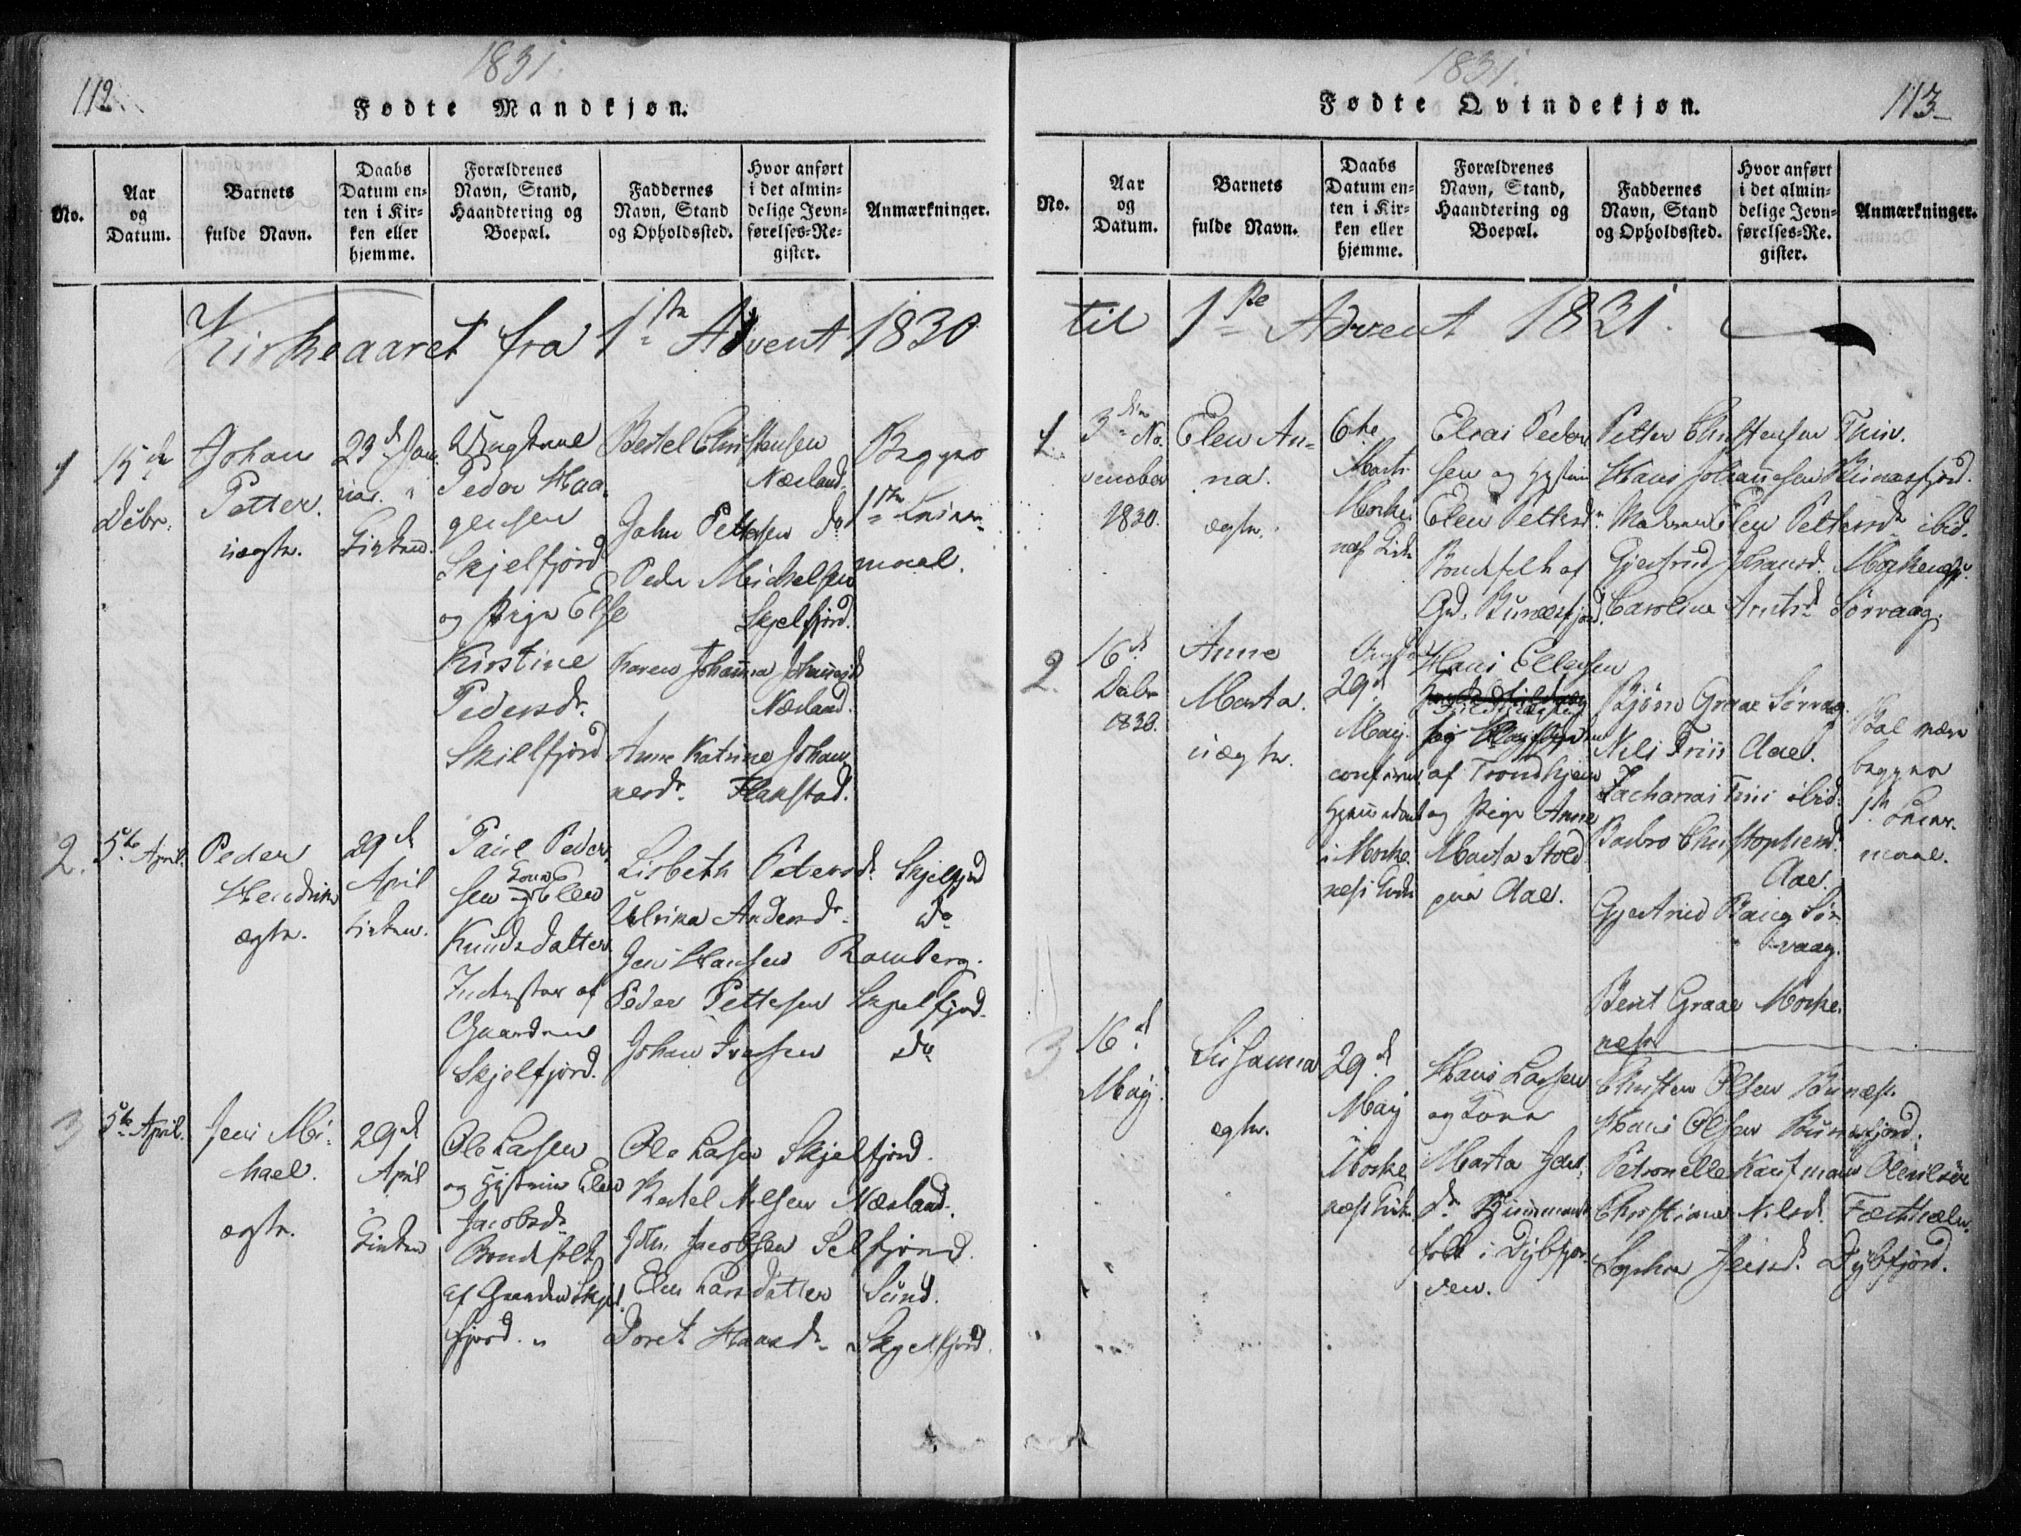 1831.
112
Fødte Mandkjøn.
No.
Aar
og
Datum.
Barnets
fulde Navn.
Daabs
Datum en-
ten i Kir-
ken eller
hjemme.
Forældrenes
Navn, Stand,
Haandtering og
Boepæl.
Faddernes
Navn, Stand
og Opholdssted.
Hvor anført
i det almin-
delige Jevn-
førelses-Re-
gister.
Anmærkninger.
Kirkeaaret fra 1ste Advent 1830
1
15de
Debr.
Johan
Petter.
uægte.
23d Jan
uar. i
Kirken.
Ungkarl
Peder Haa-
gensen
Skjelfjord
og Pige Else
Kirstine
Pedersdr.
Skielfjord
Bertel Christensen
Næsland.
John Pettersen do
Peder Michelsen
Skjelfjord.
Karen Johanna Johannesd
Næsland.
Anne Katrine Johan
nesdr. Flakstad.
Begges
1ste Leier-
maal.
2.
5te April.
Peder
Hendrik
ægte.
29d
April
Kirken.
Paul Peder-
sen og Kone Ellen
Knudsdatter
Inderster af
Gaarden
Skjelfjord.
Lisbeth Petersdr. Skjelfjord
Ulrika Andersdr. do
Jens Hansen Ramberg.
Peder Pettersen Skjelfjord.
Johan Iversen do
3
5te April.
Jens Mi-
chael.
ægte.
29d
April
Kirken
Ole Larsen
og Hustrue Elen
Jacobsdr
Bondefolk
af Gaarden Skjel-
fjord.
Ole Larsen Skjelfjord.
Bertel Nilsen Næsland.
Joh. Jacobsen Selfjord.
Elen Larsdatter Sund.
Doret Hansdr. Skjelfjord.
1831.
Fødte Qvindekjøn.
113
No.
Aar
og
Datum.
Barnets
fulde Navn.
Daabs
Datum en-
ten i Kir-
ken eller
hjemme.
Forældrenes
Navn, Stand,
Haandtering og
Boepæl.
Faddernes
Navn, Stand
og Opholdssted.
Hvor anført
i det almin-
delige Jevn-
førelses-Re-
gister.
Anmærkninger.
til 1ste Advent 1831.
1.
3die No-
vember
1830.
Elen An-
na.
ægte.
6te
Marts
Moske-
næs Kirke
Elias Peder
sen og Hustrue
Elen Pettersdr
Bondefolk af
Gd. Bunæsfjord.
Petter Christensen Tuv.
Hans Johannesen Bunæsfjord.
Madame Elen Pettersdr ibid.
Gjertrud Johansd. Moskenæs.
Caroline Arntsd Sørvaag.
2.
16d
Debr
1830.
Anne
Marta.
uægte.
29d
May.
confirm
hjemmedøbt
i Moske-
næs Kirke
Hans Ellersen
af Trondhjem
og Pige Anne
Marta Stold
paa Aae.
Bjørn Graae Sørvaag
Nils Friis Aae.
Zacharias Friis ibid.
Barbro Christophersd.
Aae.
Gjertrud Baieg Sør-
vaag.
Berit Graae Moske-
næs
begges
1ste Leier-
maal.
3
16d
May.
Susanna
ægte.
29d
May
Moske
næs Kirke
Hans Larsen
og Kone
Marta Jens-
dr. Huusmands-
folk i Dybfjor-
den.
Christen Olsen Bunæs.
Hans Olsen Bunæsfjord.
Petronelle Kaufmann Olenilsøe
Christiane Nilsd.
Sophia Jensd. Dybfjord.